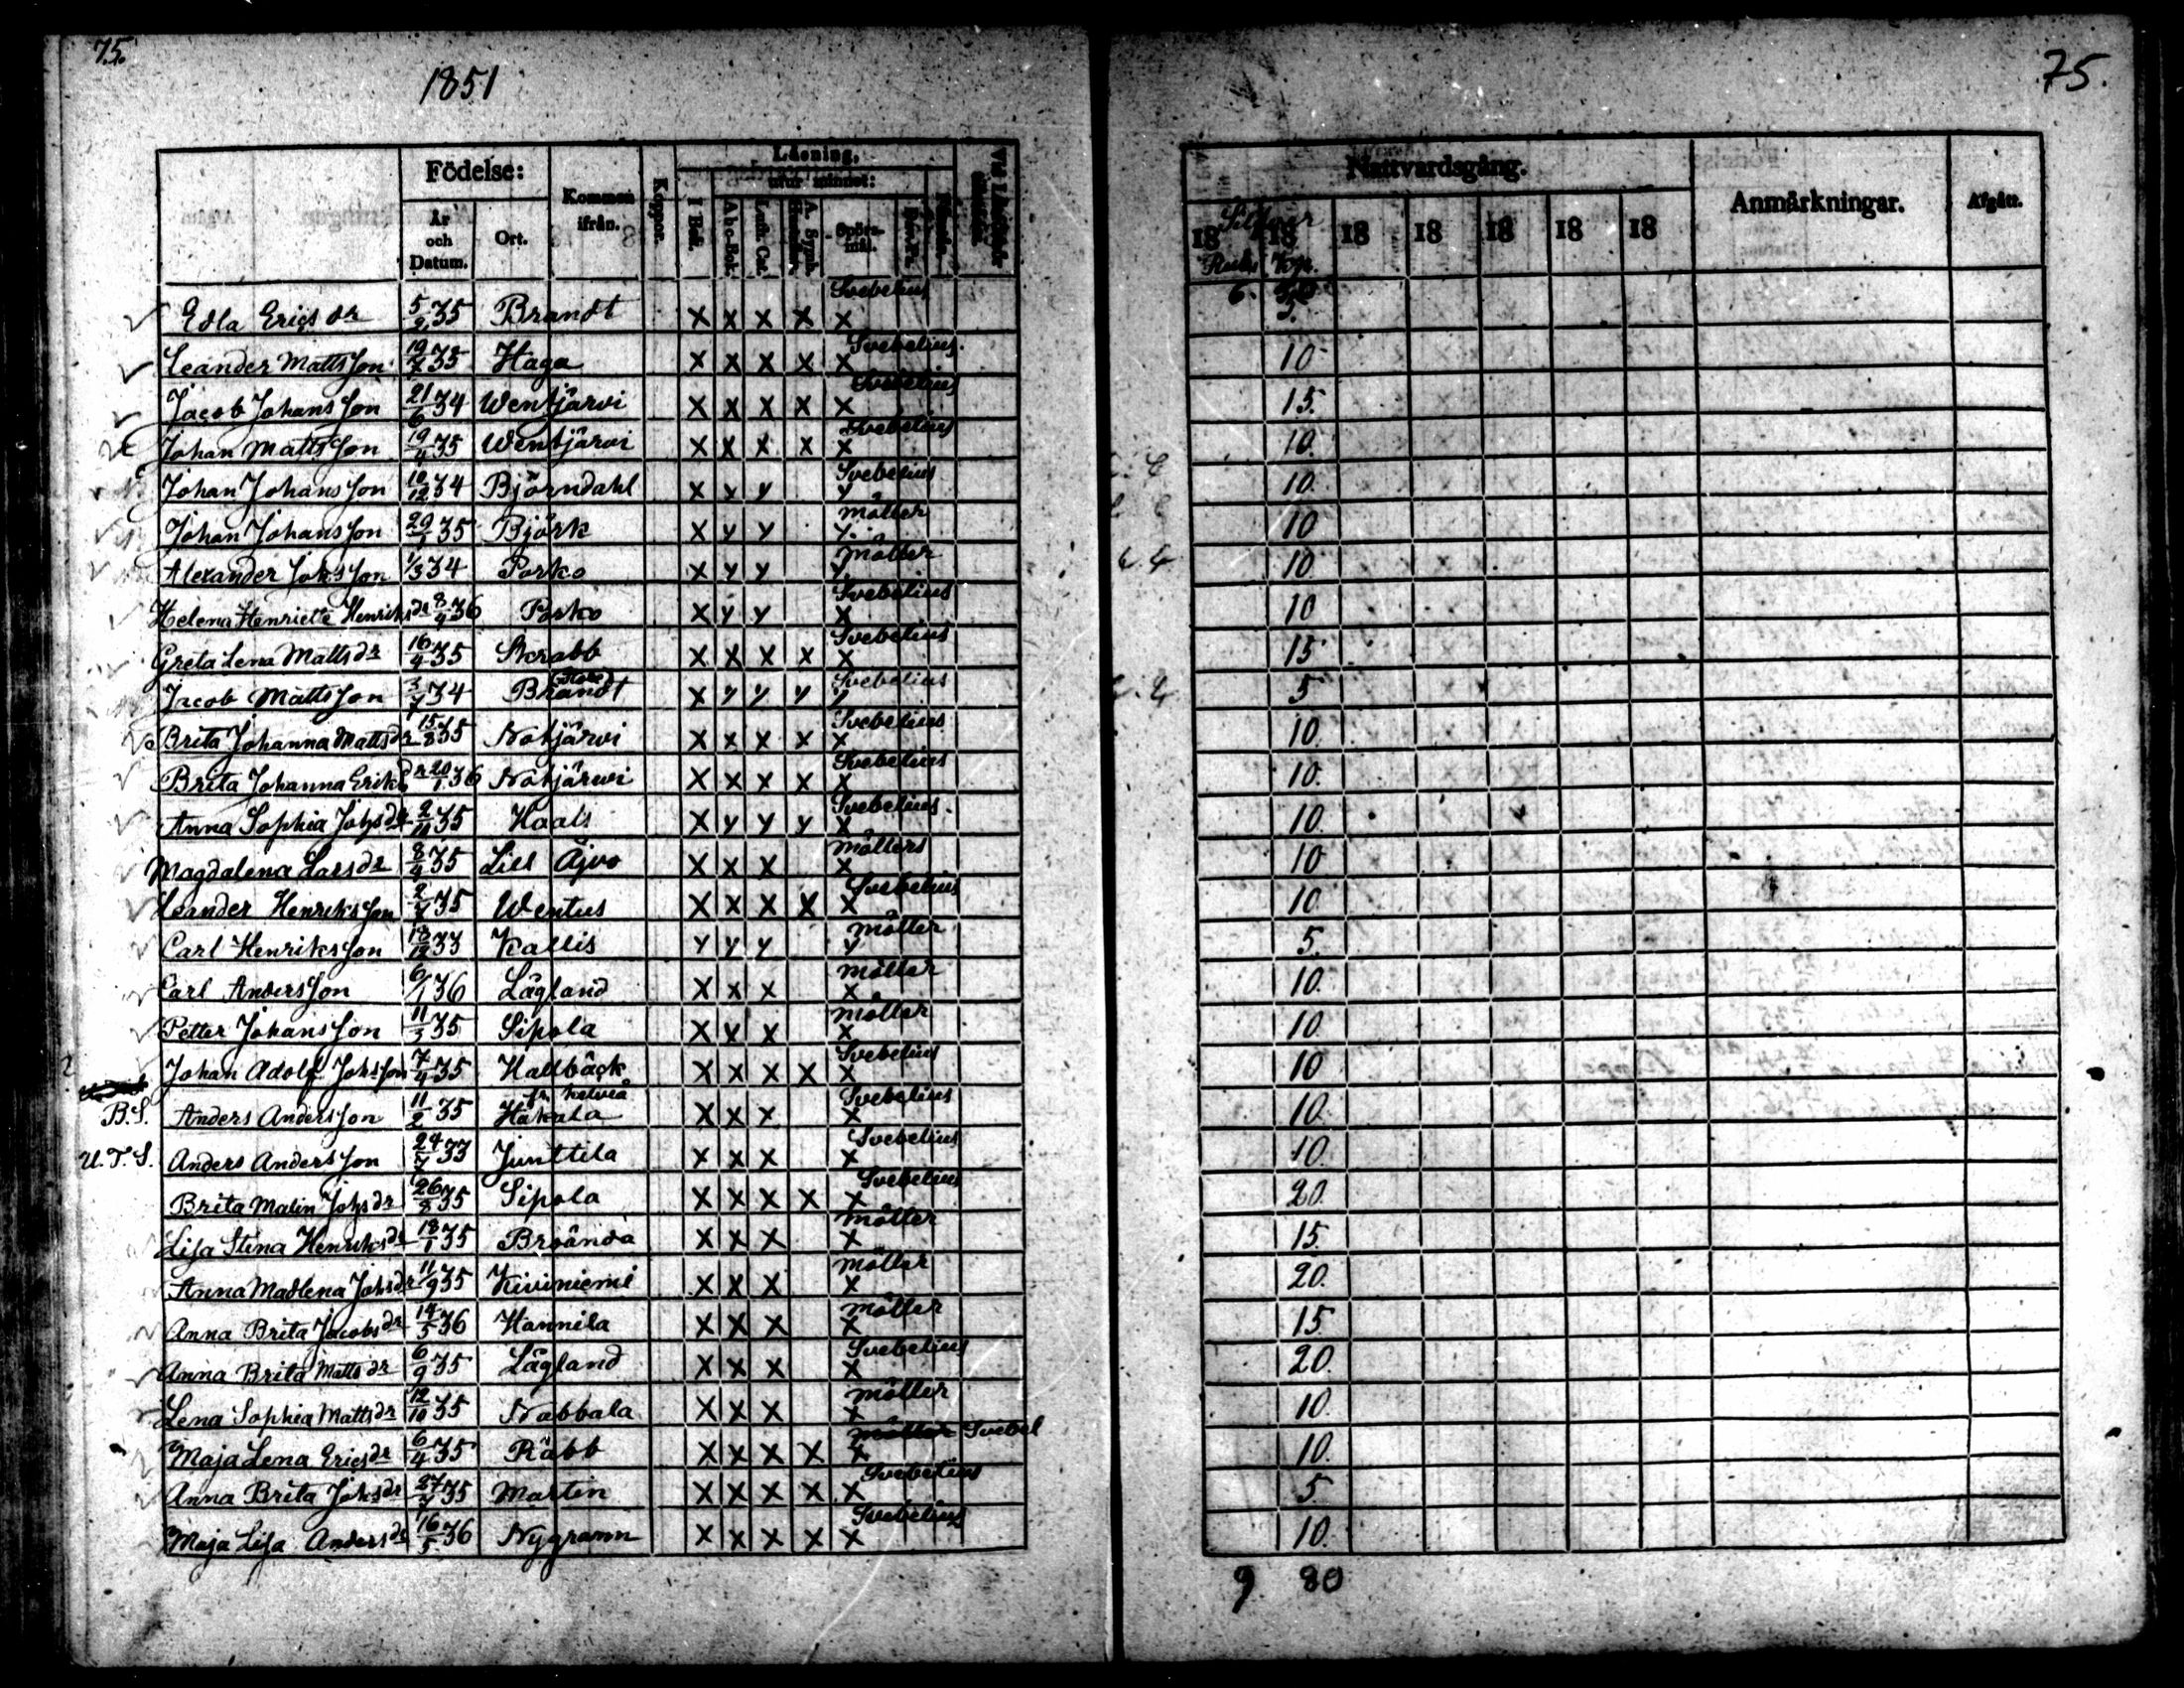 75.
75.
1851
Födelse:
Kommen ifrån.
Koppor.
Läsning,
utur minnet:
År och Datum.
Ort.
I Bok.
A b c-Bok.
Luth. Cat.
A. Symb.
Spörsmål.
Nattvardsgång.
Anmärkningar.
Afgått.
18 18 18 18 18 18 18
Silfver
Rub. Kop.
6. 
Edla Ericsdr 5/2 35 Brandt x x x x x Svebelius 5.
Leander Mattsson 19/7 35 Haga x x x x x Svebelius 10
Jacob Johansson 21/6 34 Wentjärvi x x x x x Svebelius 15.
Johan Mattsson 19/4 35 Wentjärvi x x x x x Svebelius 10.
Johan Johansson 10/12 34 Björndahl x y y y Svebelius 10.
Johan Johansson 29/1 35 Björk x y y y. Möller 10
Alexander Johsson 1/3 34 Porko x y y y Möller 10
Helena Henriette Henriksdr 8/4 36 Porko x y y x Svebelius 10
Greta Lena Mattsdr 16/4 35 Skrabb x x x x x Svebelius 15
Jacob Mattsson 3/7 34 Brandt x y y y y Svebelius 5
Brita Johanna Mattsdr 15/8 35 Notjärvi x x x x x Svebelius 10.
Brita Johanna Eriksdr 20/1 36 Notjärvi x x x x x Svebelius 10.
Anna Sophia Johsdr 2/10 35 Haals x y y y x Svebelius 10.
Magdalena Larsdr 8/4 35 Lill Åjvo x x x x Möllers 10
Leander Henriksson 2/4 35 Wentus x x x x x Svebelius 10.
Carl Henriksson 18/12 33 Kallis y y y y Möller 5.
Carl Andersson 6/1 36 Lågland x x x x Möller 10.
Petter Johansson 11/3 35 Sipola x x x x Möller 10.
Johan Adolf Johsson 7/4 35 Hallbäck x x x x x Svebelius 10
B.S. Anders Andersson 11/2 35 fr. Kelviå Hakala x x x x Svebelius 10.
U.T.S. Anders Andersson 24/7 33 Junttila x x x x Svebelius 10.
Brita Malin Johsdr 26/8 35 Sipola x x x x x Svebelius 20.
Lisa Stina Henriksdr 18/1 35 Broända x x x x Möller 15.
Anna Madlena Johsdr 11/9 35 Kiviniemi x x x x Möller 20.
Anna Brita Jacobsdr 14/5 36 Hannila x x x x Möller 15
Anna Brita Mattsdr 6/9 35 Lågland x x x x Svebelius 20.
Lena Sophia Mattsdr 12/10 35 Nabbala x x x x Möller 10.
Maja Lena Ericsdr 6/4 35 Räbb x x x x x Möller Svebel 10.
Anna Brita Johsdr 27/7 35 Martin x x x x x Svebelius 5.
Maja Lisa Andersdr 16/5 36 Nygrann x x x x x Svebelius 10.
9 80